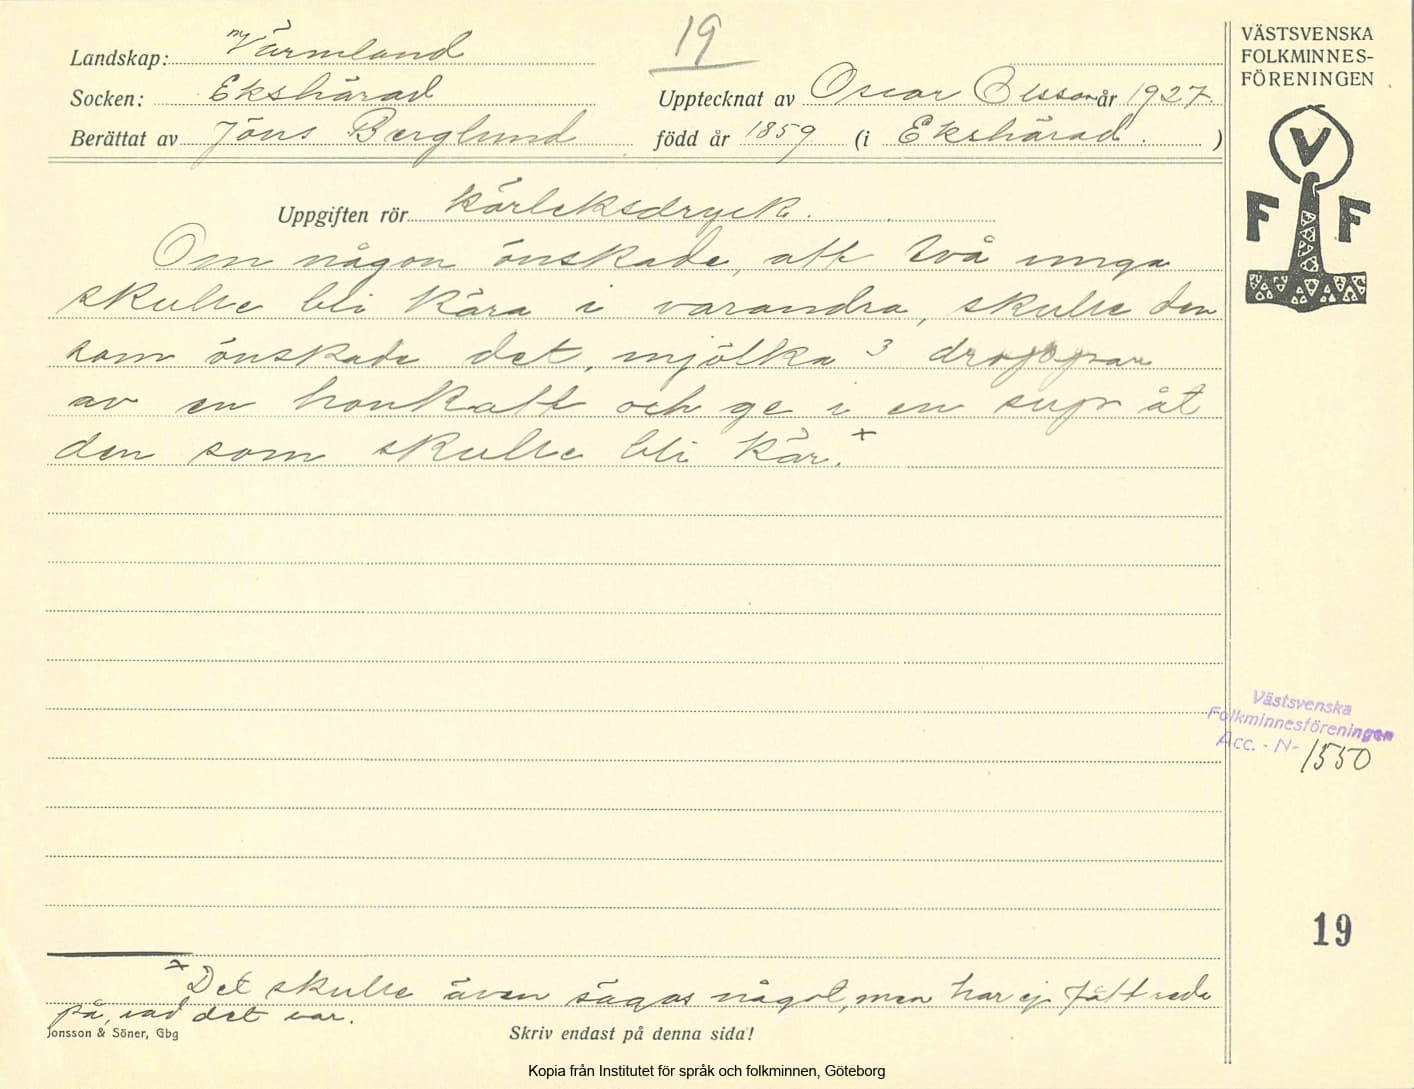 19
Landskap: Värmland
Socken: Ekshärad
Upptecknat av Oscar Olsson år 1927.
Berättat av Jöns Berglund född år 1859 (i Ekshärad.)
Uppgiften rör kärleksdryck.
Om någon önskade, att två unga
skulle bli kära i varandra, skulle den
som önskade det, mjölka 3 droppar
av en honkatt och ge i en sup åt
den som skulle bli kär.x
x Det skulle även sägas något, men har ej fått reda
på, vad det var.
Jonsson & Söner, Gbg
Skriv endast på denna sida!
VÄSTSVENSKA
FOLKMINNES-
FÖRENINGEN
V
F F
Västsvenska
Folkminnesföreningen
Acc. - N- 1550
19
Kopia från Institutet för språk och folkminnen, Göteborg